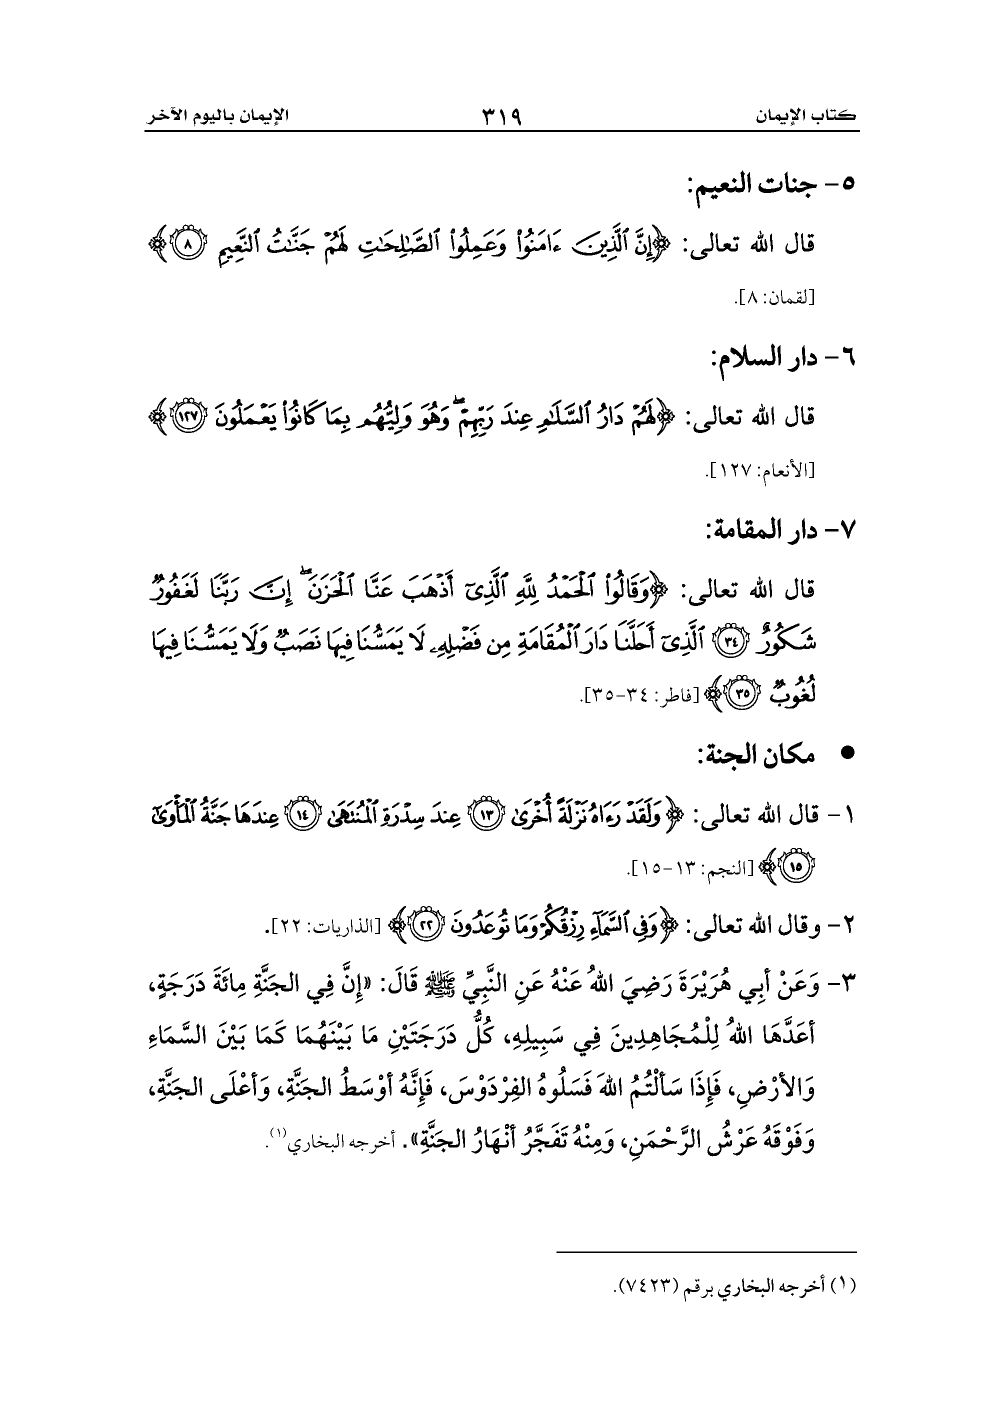 كتاب الإيمان ٣١٩ الإيمان باليوم الآخر
٥- جنات النعيم:
قال الله تعالى: ﴿إِنَّ ٱلَّذِينَ ءَامَنُوا۟ وَعَمِلُوا۟ ٱلصَّـٰلِحَـٰتِ لَهُمْ جَنَّـٰتُ ٱلنَّعِيمِ ٨﴾
[لقمان: ٨].
٦- دار السلام:
قال الله تعالى: ﴿لَهُمْ دَارُ ٱلسَّلَـٰمِ عِندَ رَبِّهِمْ ۖ وَهُوَ وَلِيُّهُم بِمَا كَانُوا۟ يَعْمَلُونَ ١٢٧﴾
[الأنعام: ١٢٧].
٧- دار المقامة:
قال الله تعالى: ﴿وَقَالُوا۟ ٱلْحَمْدُ لِلَّهِ ٱلَّذِىٓ أَذْهَبَ عَنَّا ٱلْحَزَنَ ۖ إِنَّ رَبَّنَا لَغَفُورٌ
شَكُورٌ ٣٤ ٱلَّذِىٓ أَحَلَّنَا دَارَ ٱلْمُقَامَةِ مِن فَضْلِهِۦ لَا يَمَسُّنَا فِيهَا نَصَبٌ وَلَا يَمَسُّنَا فِيهَا
لُغُوبٌ ٣٥﴾ [فاطر: ٣٤-٣٥].
● مكان الجنة:
١- قال الله تعالى: ﴿وَلَقَدْ رَءَاهُ نَزْلَةً أُخْرَىٰ ١٣ عِندَ سِدْرَةِ ٱلْمُنتَهَىٰ ١٤ عِندَهَا جَنَّةُ ٱلْمَأْوَىٰٓ
١٥﴾ [النجم: ١٣-١٥].
٢- وقال الله تعالى: ﴿وَفِى ٱلسَّمَآءِ رِزْقُكُمْ وَمَا تُوعَدُونَ ٢٢﴾ [الذاريات: ٢٢].
٣- وَعَنْ أبِي هُرَيْرَةَ رَضِيَ اللهُ عَنْهُ عَنِ النَّبِيِّ ﷺ قَالَ: «إِنَّ فِي الجَنَّةِ مِائَةَ دَرَجَةٍ،
أعَدَّهَا اللهُ لِلْمُجَاهِدِينَ فِي سَبِيلِهِ، كُلُّ دَرَجَتَيْنِ مَا بَيْنَهُمَا كَمَا بَيْنَ السَّمَاءِ
وَالأرْضِ، فَإِذَا سَألْتُمُ اللهَ فَسَلُوهُ الفِرْدَوْسَ، فَإِنَّهُ أوْسَطُ الجَنَّةِ، وَأعْلَى الجَنَّةِ،
وَفَوْقَهُ عَرْشُ الرَّحْمَنِ، وَمِنْهُ تَفَجَّرُ أنْهَارُ الجَنَّةِ». أخرجه البخاري(١).
(١) أخرجه البخاري برقم (٧٤٢٣).